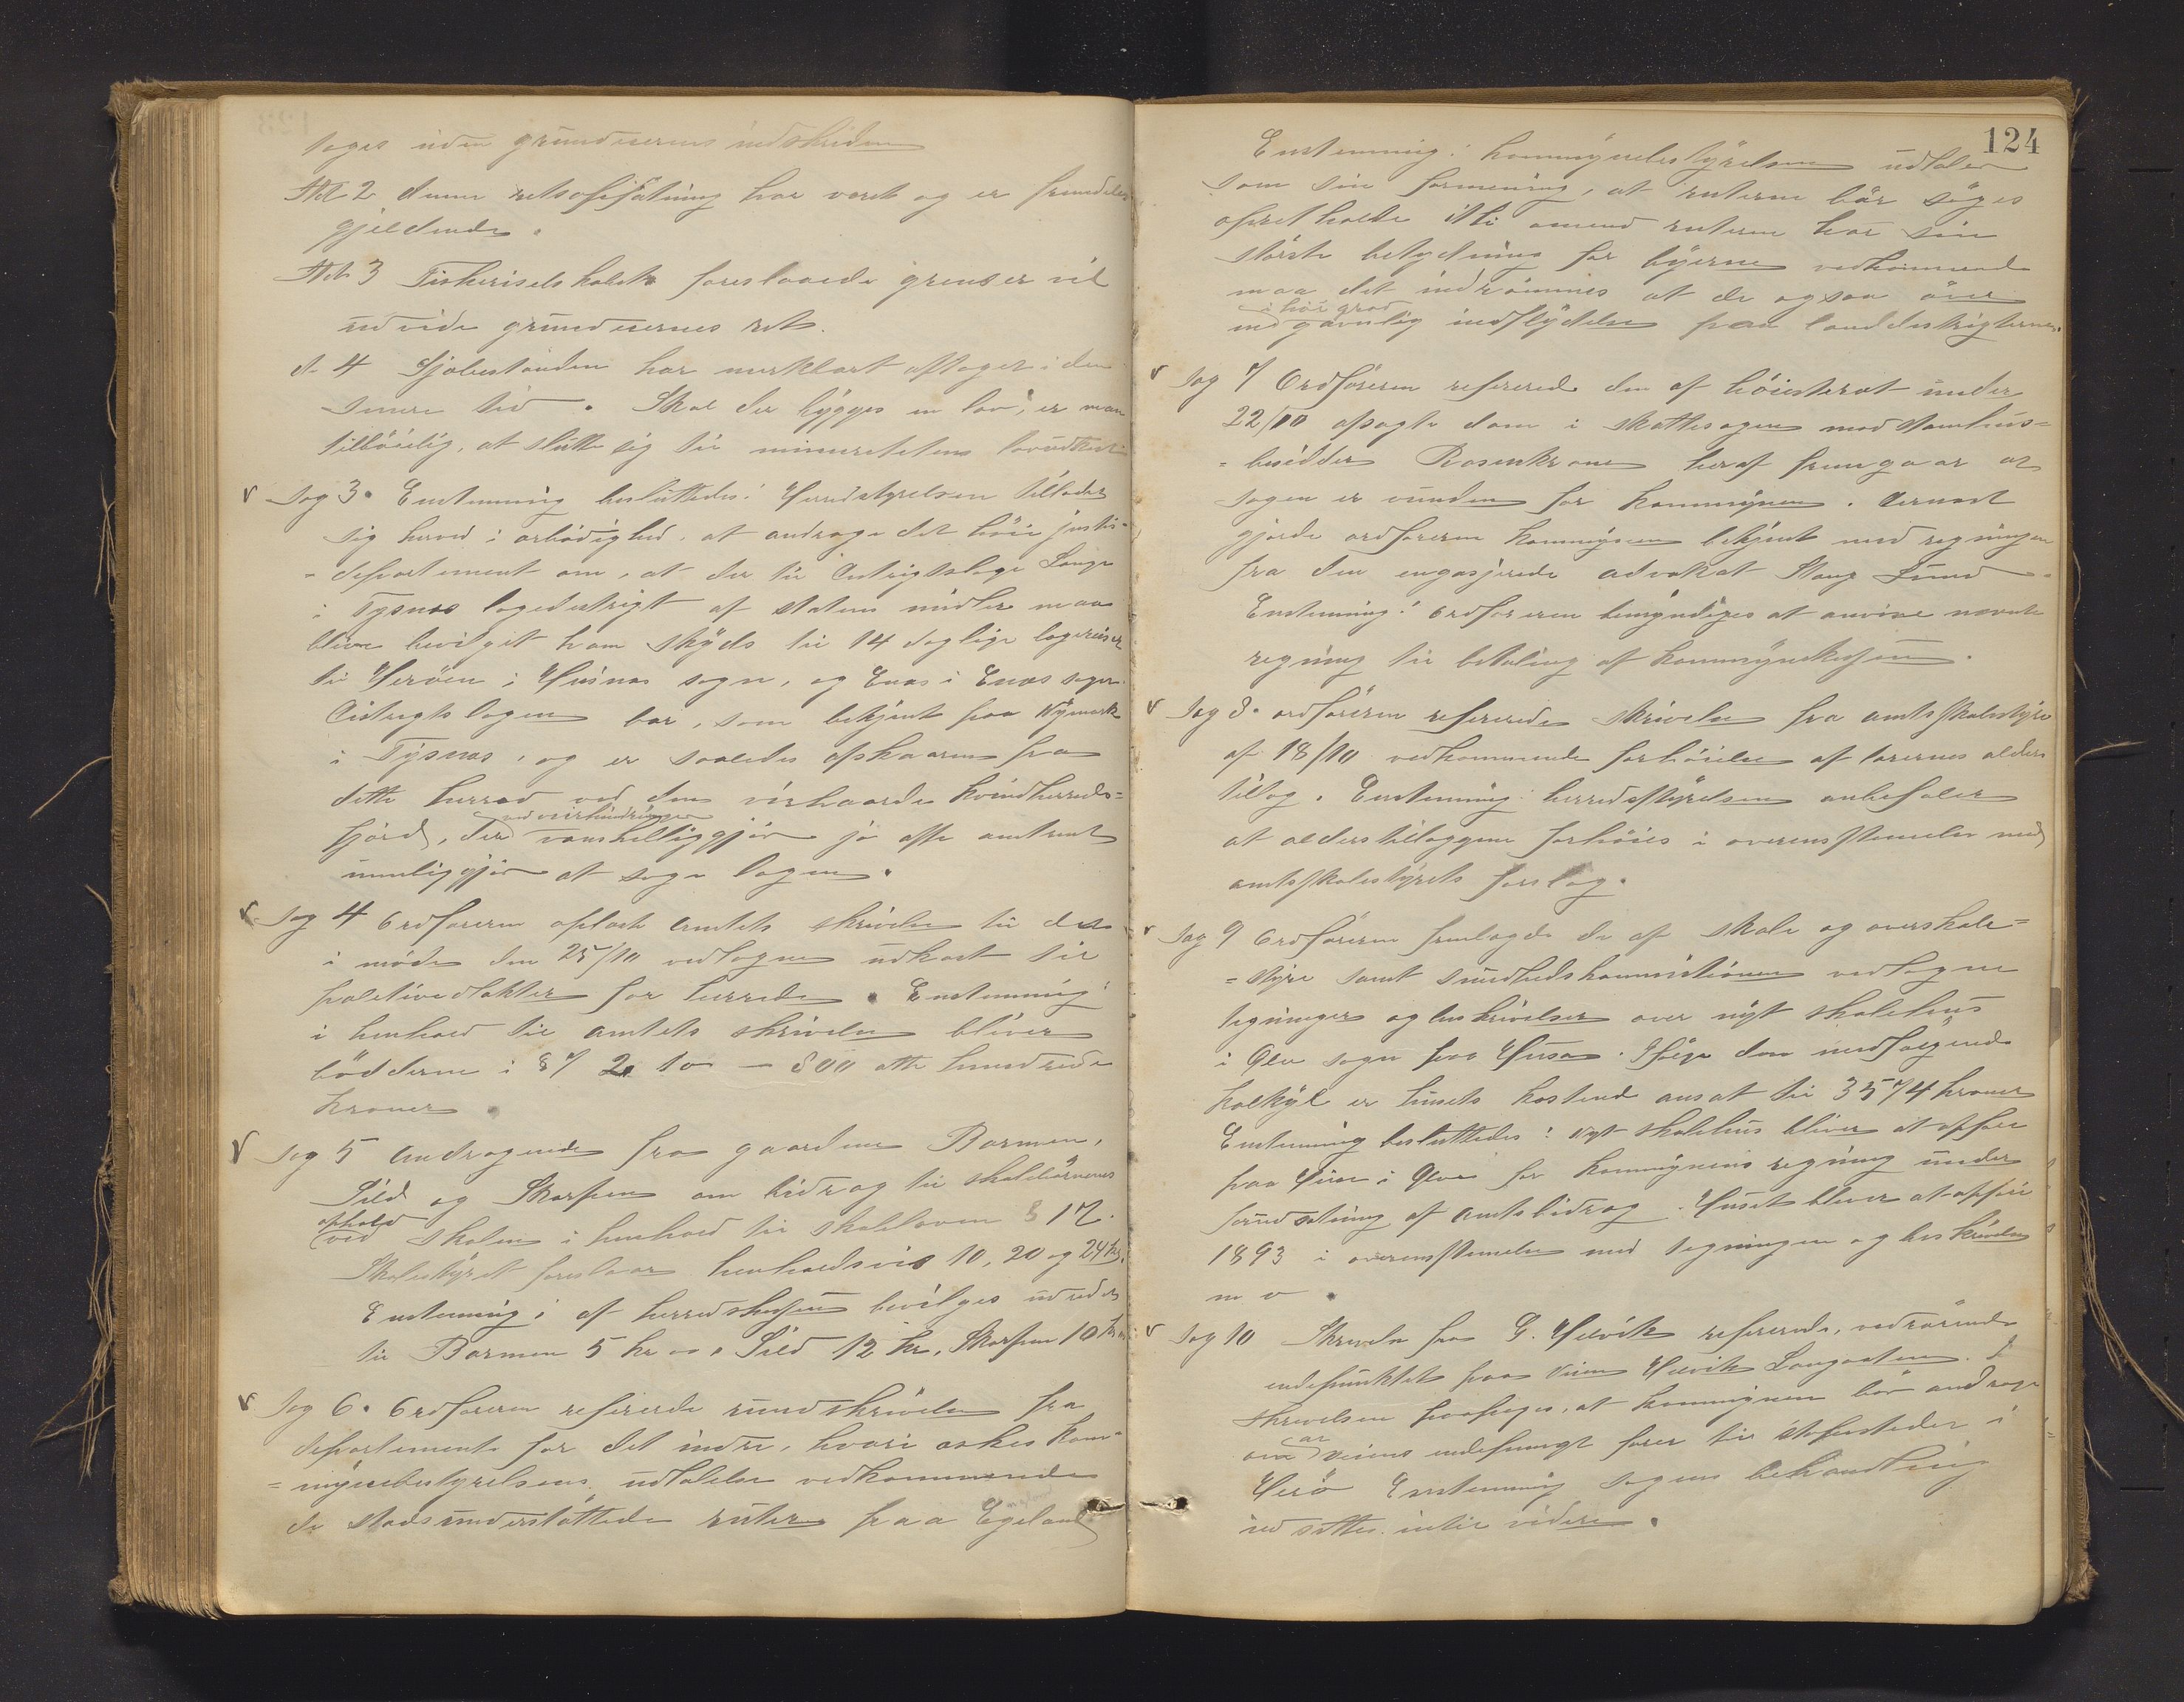 toges uden grundeierens indskriden
Ad 2 denne retsopfatning har været og er fremdeles
gjeldende.
Ad 3 Fiskeriselskabets foreslaaede grenser vil
udvide grundeiernes ret.
Ad 4 har merkbart aftaget i den
senere tid. Skal der bygges en lov, er man
tilbøielig, at slutte sig til minoritetens lovudkast
Sag 3. Enstemmig besluttedes: Herredstyrelsen tillader
sig herved i ærbødighed, at andrage det høie justis-
-departement om, at der til Distrigtslæge Lange
i Tysnæs lægedistrigt af statens midler maa
blive bevilget ham skyds til 14 daglige lægereiser
til Herøen i Husnæs sogn, og Enæs i Enæs sogn.
Distrigtslægen bor, som bekjent paa Nymark
i Tysnæs, og er saaledes afskaaren fra
dette herred ved den veirhaarde Kvindherreds-
ved veirhindringer
fjord, der vanskeliggjør ja ofte omtrent
umuliggjør at søge lægen.
Sag 4 Ordføreren oplæste Amtets skrivelse til det
i møde den 25/10 vedtagne udkast til
politivedtekter for herredet. Enstemmig:
i henhold til amtets skrivelse bliver
bødderne i § 7 2 to – 800 otte hundrede
kroner.
Sag 5 Andragende fra gaardene Barmen,
Sild og Skorpen om bidrag til skolebørnenes
ophold
ved skolen i henhold til skoleloven § 17.
Skolestyret foreslaar henholdsvis 10, 20 og 24 kr.
Enstemmig: af herredskassen bevilges
til Barmen 5 kr Sild 12 kr, Skorpen 10 kr
Sag 6. Ordføreren refererede rundskrivelse fra
departementet for det indre, hvori æskes kom-
-munebestyrelsens udtalelse vedkommende
de stadsunderstøttede ruter paa England
124
Enstemmig: Kommunebestyrelsen udtaler
som sin formening, at ruterne bør søges
opretholdt. Thi omend ruterne har sin
største betydning for byerne vedkommende
maa det indrømmes at de ogsaa øver
i høi grad
en gavnlig indflydelse paa landdistrigterne.
Sag 7 Ordføreren refererede den af høiesteret under
22/10 afsagte dom i skattesagen mod Stamhus-
-besidder Rosenkrone heraf fremgaar at
sagen er vunden for kommunen. Dernæst
gjorde ordføreren kommunen bekjent med regningen
fra den engasjerede advokat Stang Lund.
Enstemmig: Ordføreren bemyndiges at anvise nævnte
regning til betaling af kommunekassen.
Sag 8. Ordføreren refererede skrivelse fra amtsskolestyre
af 18/10 vedkommende forhøielse af lærernes alders
tillæg. Enstemmig: herredsstyrelsen anbefaler
at alderstillæggene forhøies i overensstemmelse med
amtsskolestyrets forslag.
Sag 9 Ordføreren fremlagde de af skole og overskole-
-styre samt sundhedskommisionen vedtagne
tegninger og beskrivelser over nyt skolehus
i Ølve sogn paa Husa. Ifølge den medfølgende
kalkyl er husets kostende ansat til 3574 kroner
Enstemmig besluttedes: Nyt skolehus bliver at opføre
paa Huse i Ølve for kommunens regning under
forudsætning af amtsbidrag. Huset bliver at opføre
1893 i overensstemmelse med tegningen og beskrivelsen
m v.
Sag 10 Skrivelse fra G. Helvik refererede, vedrørende
endepunktet paa Veien
skrivelsen paapeges, at kommunen bør andrage
om at veiens endepungt fører til stoppestedet i
Herø Enstemmig sagens behandling
udsættes indtil videre.